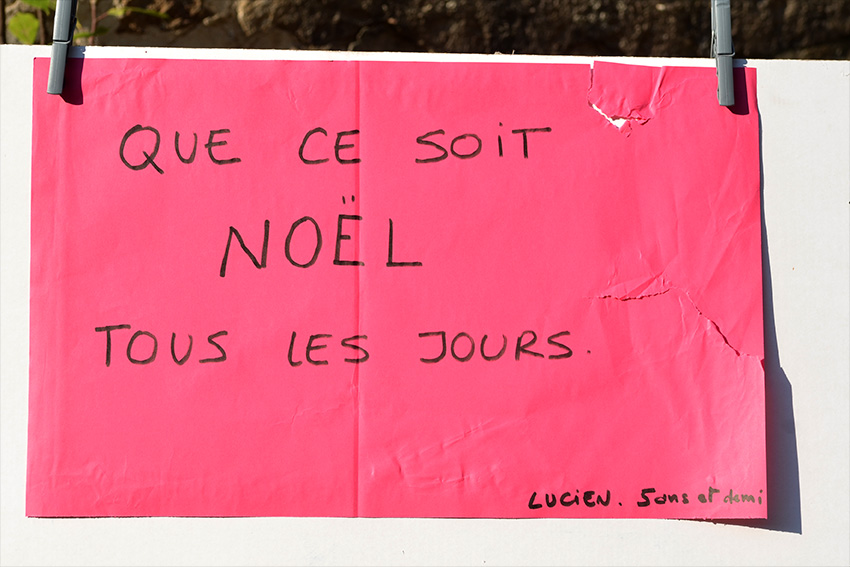 QUE CE SOiT
NOËL
TOUS LES JOURS.
LUCiEN. 5 ans et demi